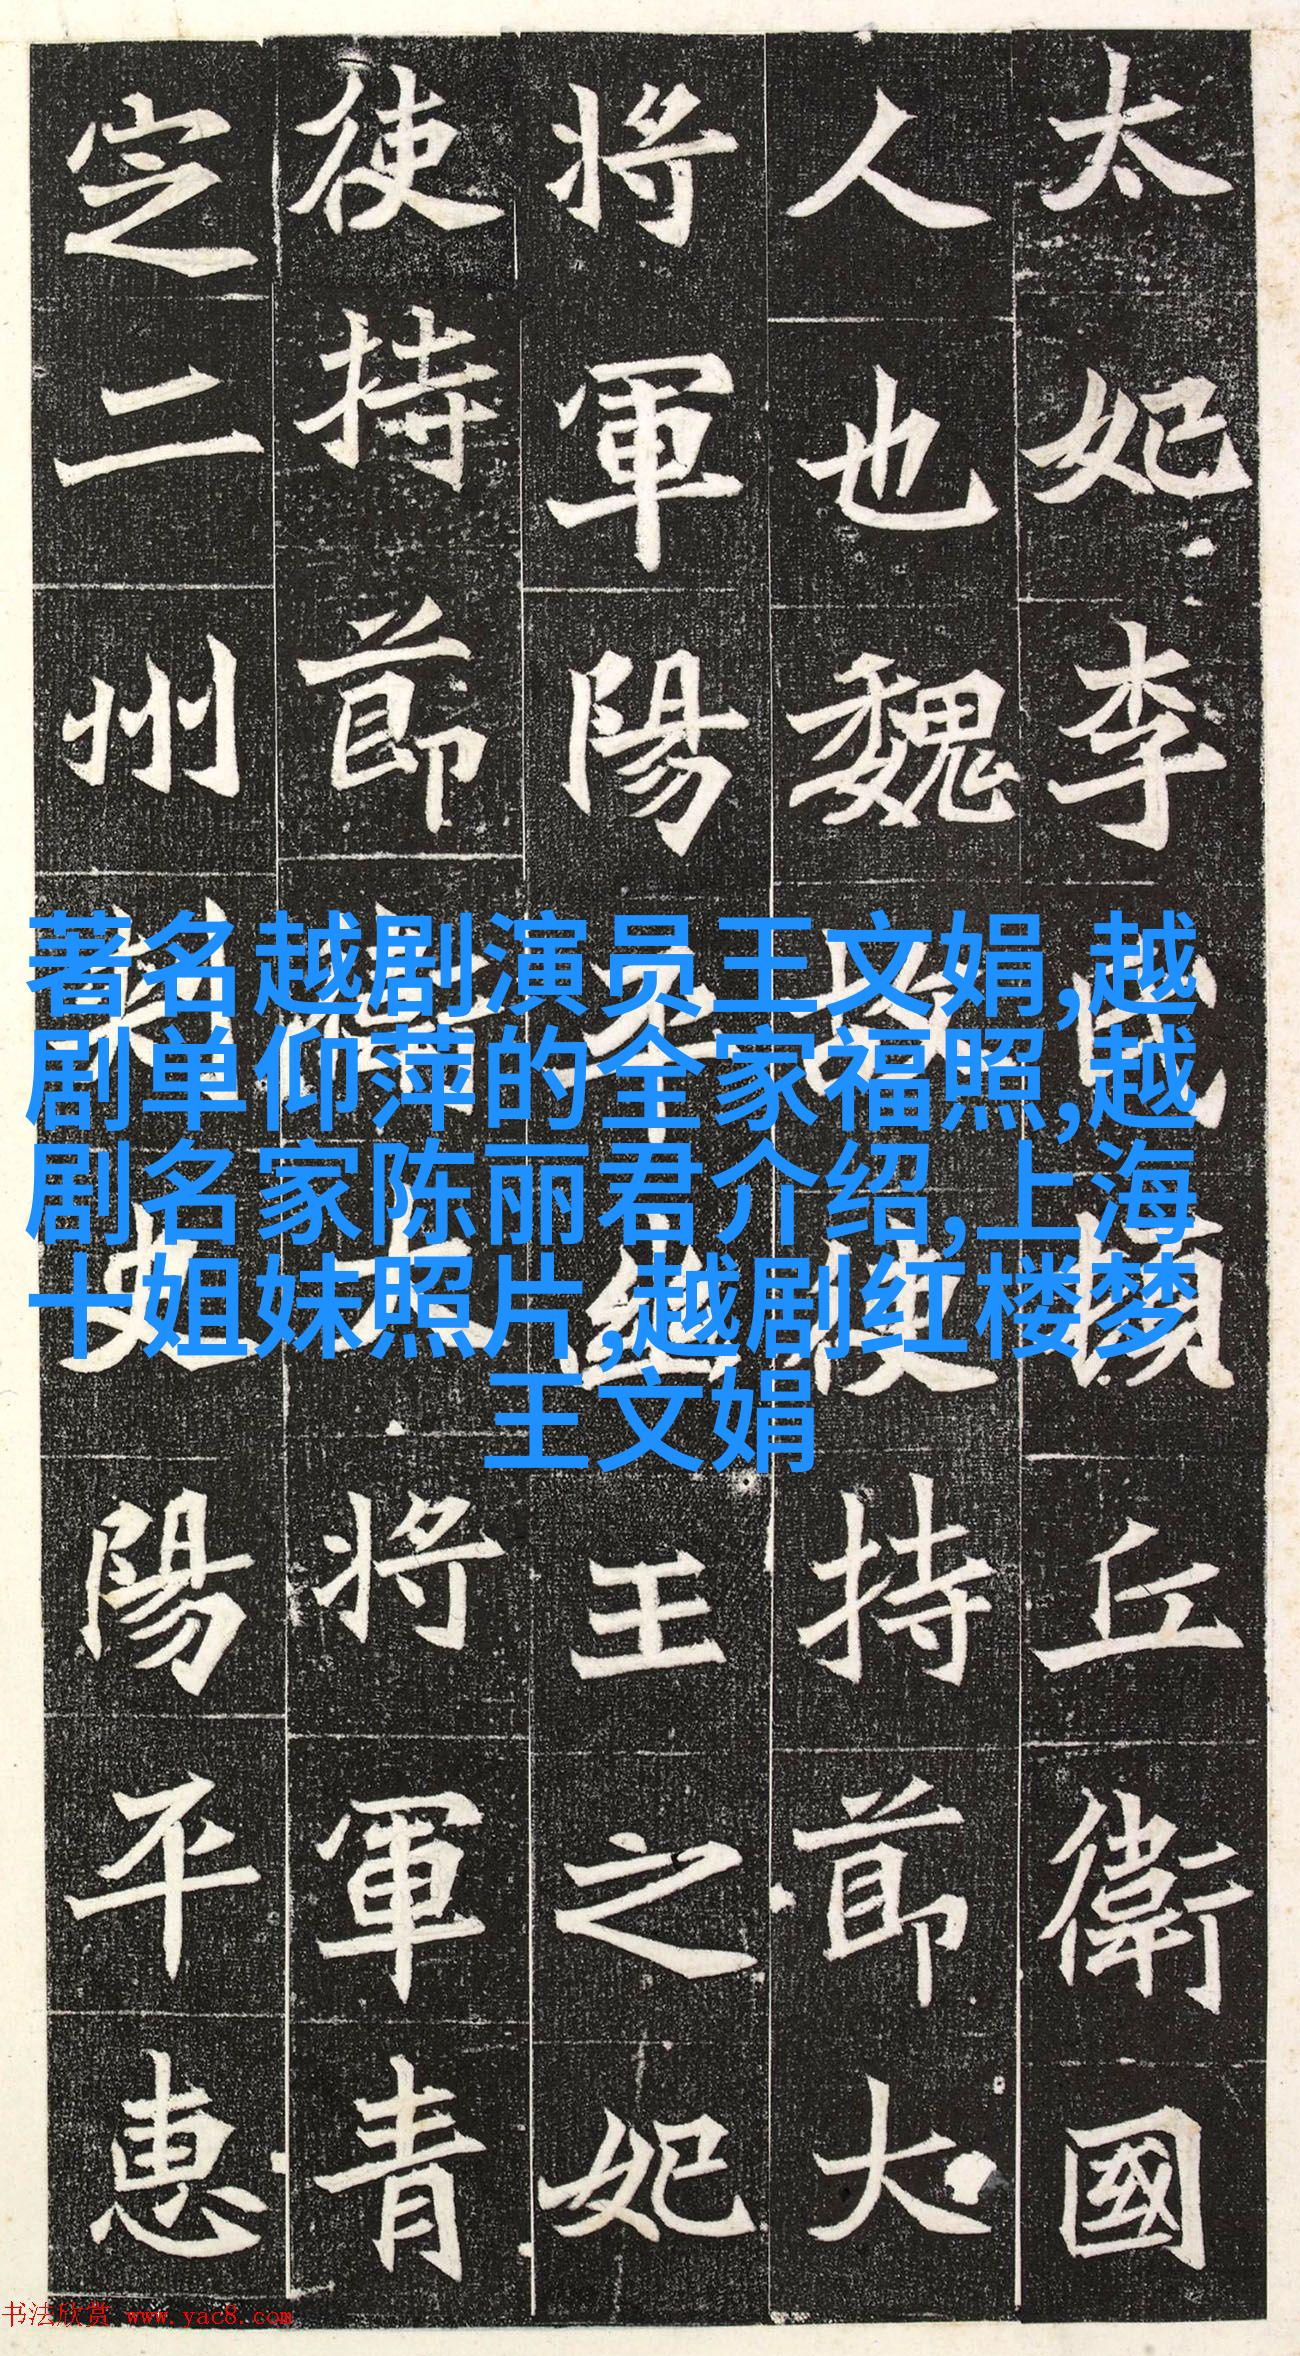 太妃李氏頓丘衛國
人也魏故使持節大
將軍陽平幽王之妃
使持節大將軍青
定二州刺史陽平惠
著名越剧演员王文娟,越
剧单仰萍的全家福照,越
剧名家陈丽君介绍,上海
十姐妹照片,越剧红楼梦
王文娟
书法欣赏 www.yac8.com